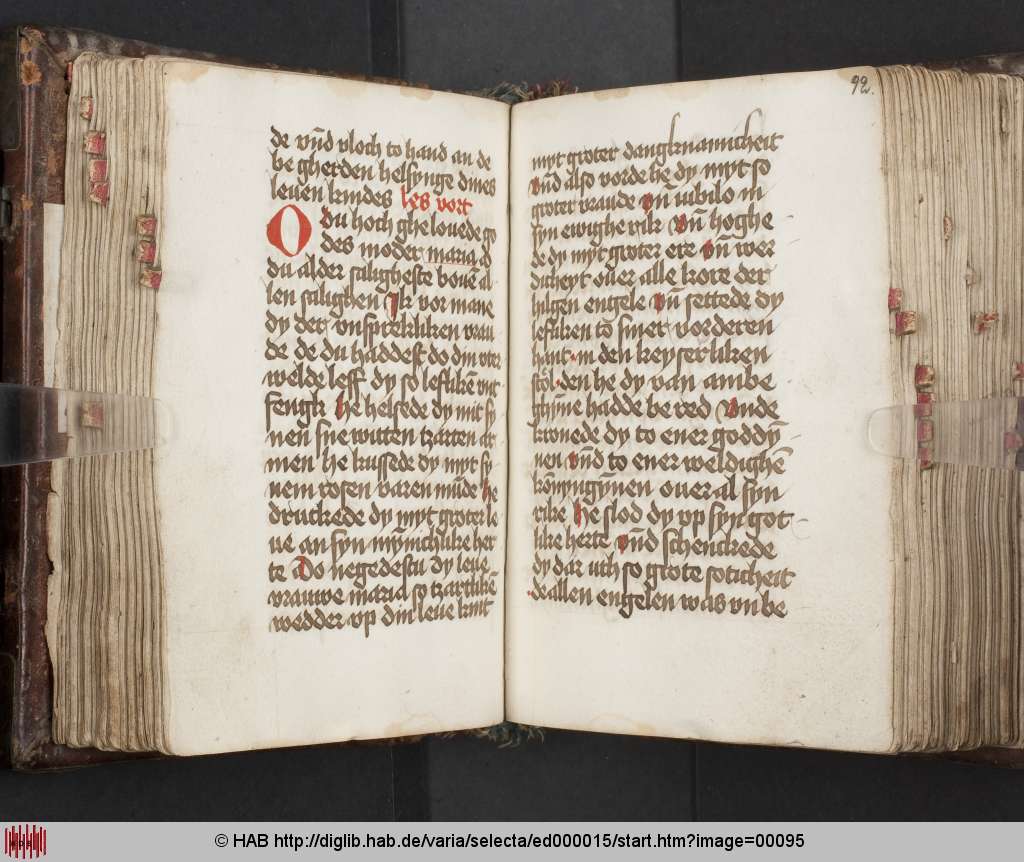 de vn̄d vloch to hand an de
be gherden helsynge dines
leuen kindes les vort
O du hoch ghelouede go
des moder maria. O
du alder saligheste bouē al
len salighen Ik vor mane
dy der vnsprekliken vrau
de de du haddest do din vter
welde leff dy so lefliken vnt
fengk he helsede dy mit sy
nen sne witten tzarten ar
men he kussede dy myt sy
nem rosen varen mūde he
druckede dy myt groter le
ue an syn mȳnichlike her
te Do negedestu dy leue
vrauwe maria so tzartlikē
wedder vp din leue kint
92.
myt groter dangknamicheit
vn̄d also vorde he dy myt so
groter vraude vn̄ iubilo in
syn ewighe rik vn̄ hoghe
de dy myt groter ere vn̄ wer
dicheyt ouer alle kore der
hilgen engele vn̄ settede dy
lefliken to siner vorderen
hant · in den keyserliken
stōl · den he dy van ambe
ghȳne hadde bered vnde
kronede dy to ener goddȳ
nen vn̄d to ener weldighē
kōnyngȳnen ouer al syn
rike he slod dy vp syn got
like herte vn̄d schenckede
dy dar uth so grote soticheit
de allen engelen was vnbe
© HAB http://diglib.hab.de/varia/selecta/ed000015/start.htm?image=00095